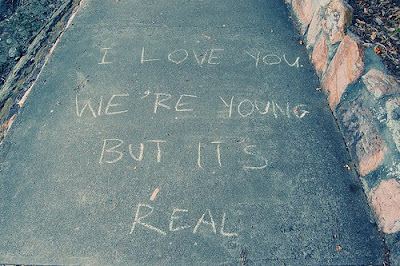 I LOVE YOU.
WE'RE YOUNG
BUT IT'S
REAL